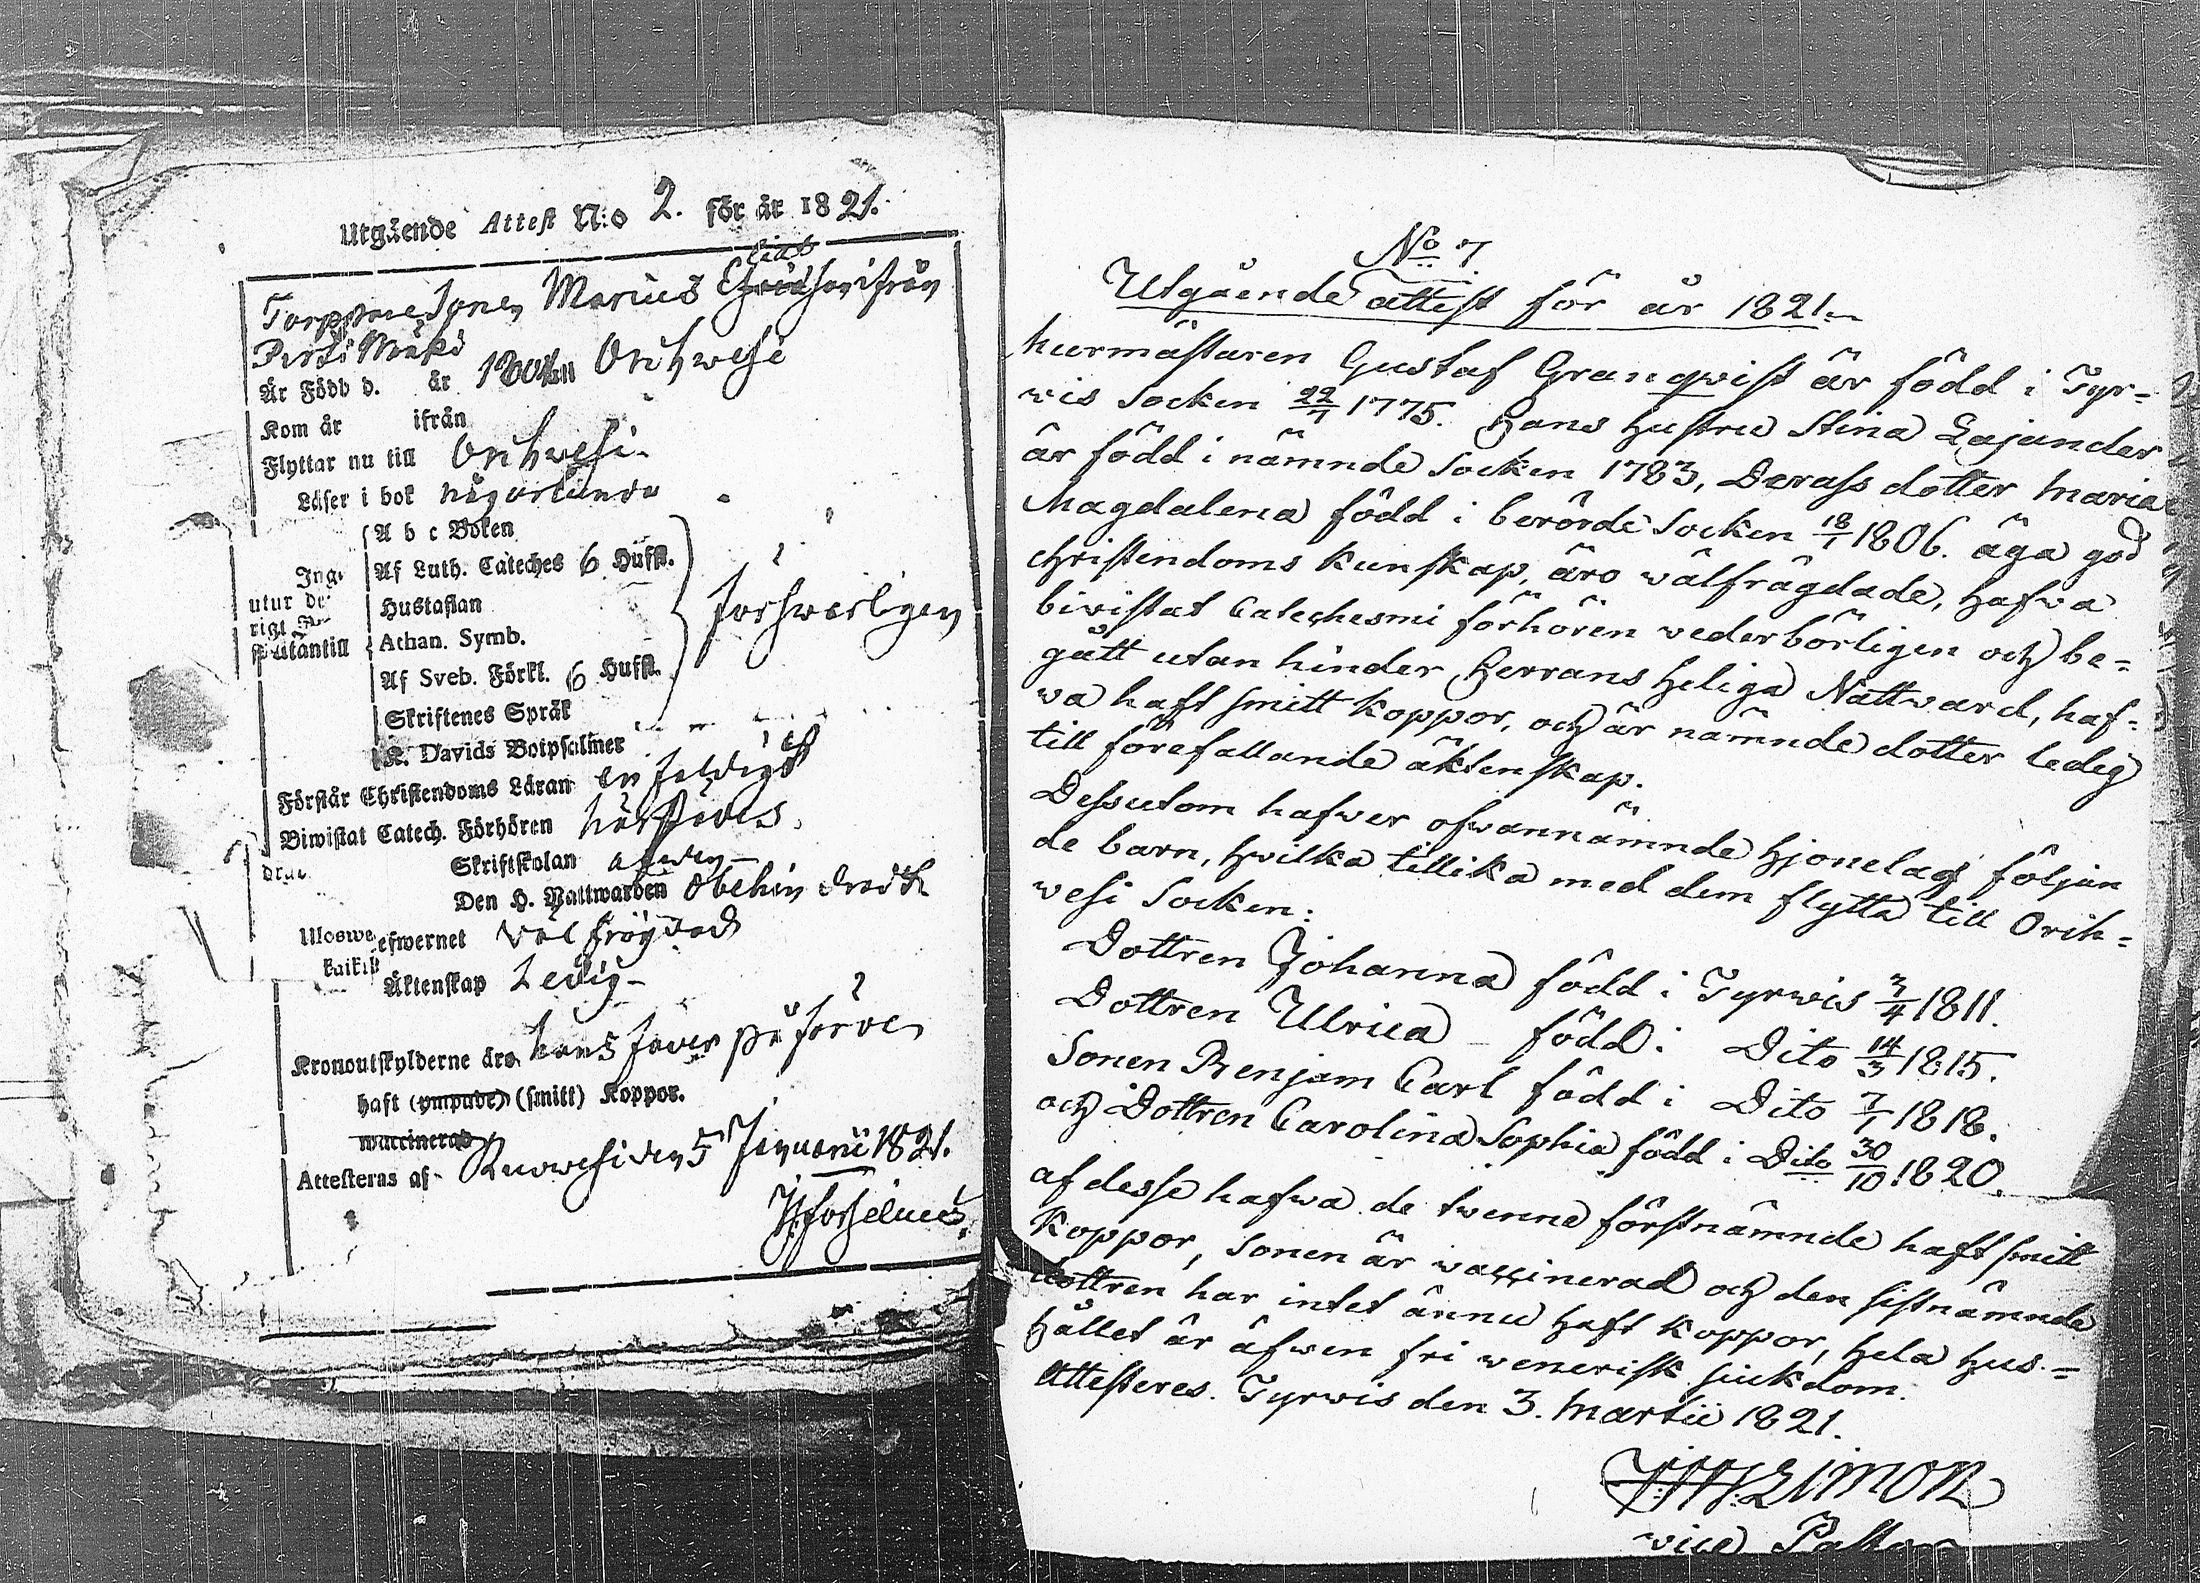 Utgående Attest N:o 2. för år 1821.
Torppare Sonen Marius ifrån
Är Född d. år 1801 Orihwesi
Kom år ifrån
Flyttar nu till Orihwesi.
Läser i bok någorlunda
A b c Boken
Af Luth. Cateches 6 Hufst.
Hustaflan
utantill Athan. Symb.
förswarligen
Af Sveb. Förkl. 6 Hufst.
Skriftenes Språk
K. Davids Botpsalmer
Förstår Christendoms Läran enfaldigt
Biwistat Catech. Förhören
Skriftskolan äfwen
Den H. Nattwarden obehindradt
efwernet wälfrägdad
Äktenskap Ledig
Kronoutskylderne äro
haft (ympade) (smitt) Koppor.
waccinerad
Attesteras af Ruowesi den 5 Januarii 1821.
No 7
Utgående attest för år 1821.
Murmästaren Gustaf Granqwist är född i Tyr-
wis Socken 22/7 1775. Hans Hustru Stina Lajander
är född i nämnde Socken 1783, Derass dotter Maria
Magdalena född i berörde Socken 18/1 1806. äga god
christendoms kunskap, äro wälfrägdade, hafwa
biwistat Catechesmi förhören wederbörligen och be-
gått utan hinder Herrans Heliga Nattward, haf-
wa haft smitt koppor, och är nämnde dotter ledig
till förefallande äktenskap.
Dessutom hafwer ofwannämnde Hjonelag följan
de barn, hwilka tillika med dem flytta till Orih-
wesi Socken:
Dottren Johanna född i Tyrwis 3/4 1811.
Dottren Ulrica född i Dito 14/3 1815.
Sonen Benjam Carl född i Dito 7/1 1818.
och Dottren Carolina Sophia född i Dito 30/10 1820.
af desse hafwa de twenne förstnämnde haft smitt
koppor, Sonen är waccinerad och den sistnämnde
dottren har intet ännu haft koppor, hela hus-
hållet är äfwen fri wenerisk siukdom.
Attesteres. Tyrwis den 3. Martii 1821.
Limon
vice Pastor